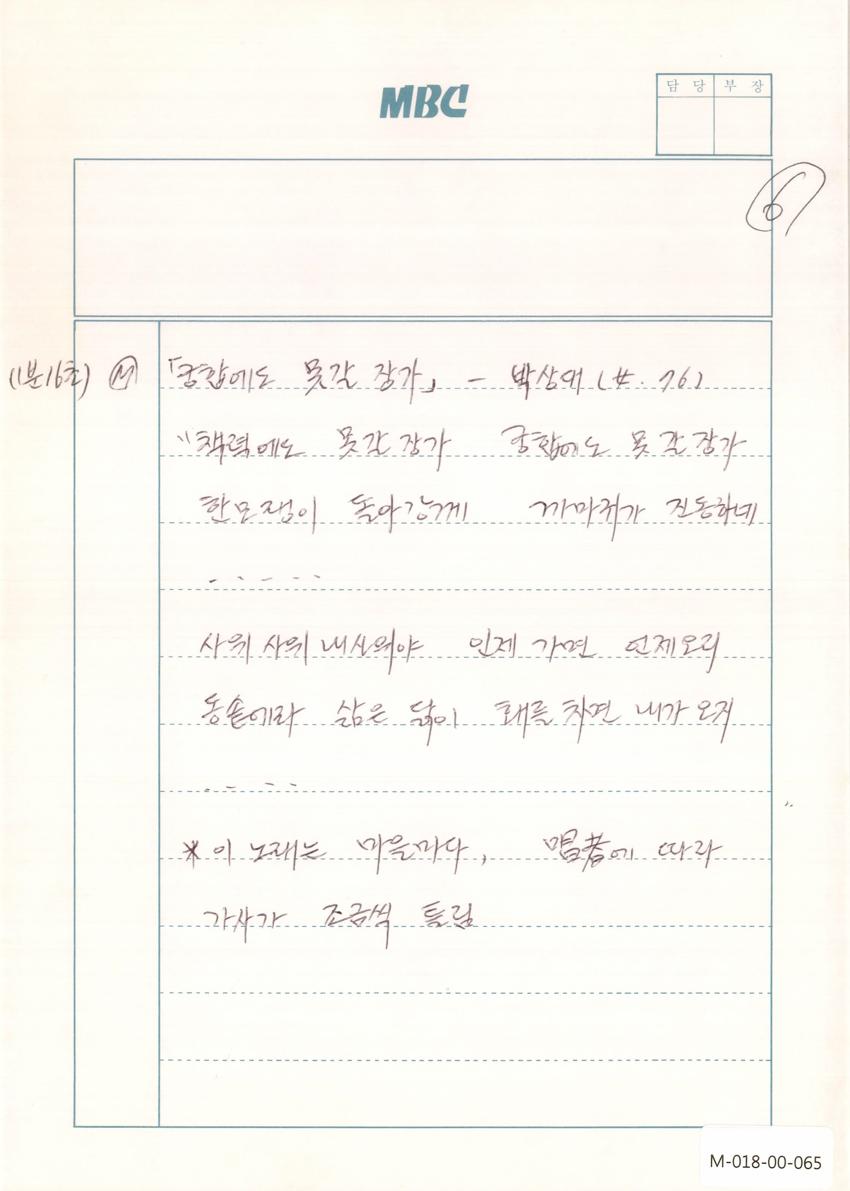 MBC
담 당 부 장
6
(1분16초) Ⓜ 「궁합에도 못갈 장가」 - 박상대 (#. 76)
"책력에도 못갈장가 궁합에도 못갈장가
한모쟁이 돌아강게 까마귀가 진동하네
. . . . . .
사위 사위 내사위야 인제 가면 언제오리
동솥에라 삶은 닭이 홰를 치면 내가 오지
. . . . .
※ 이 노래는 마을마다, 唱者에 따라
가사가 조금씩 틀림
M-018-00-065